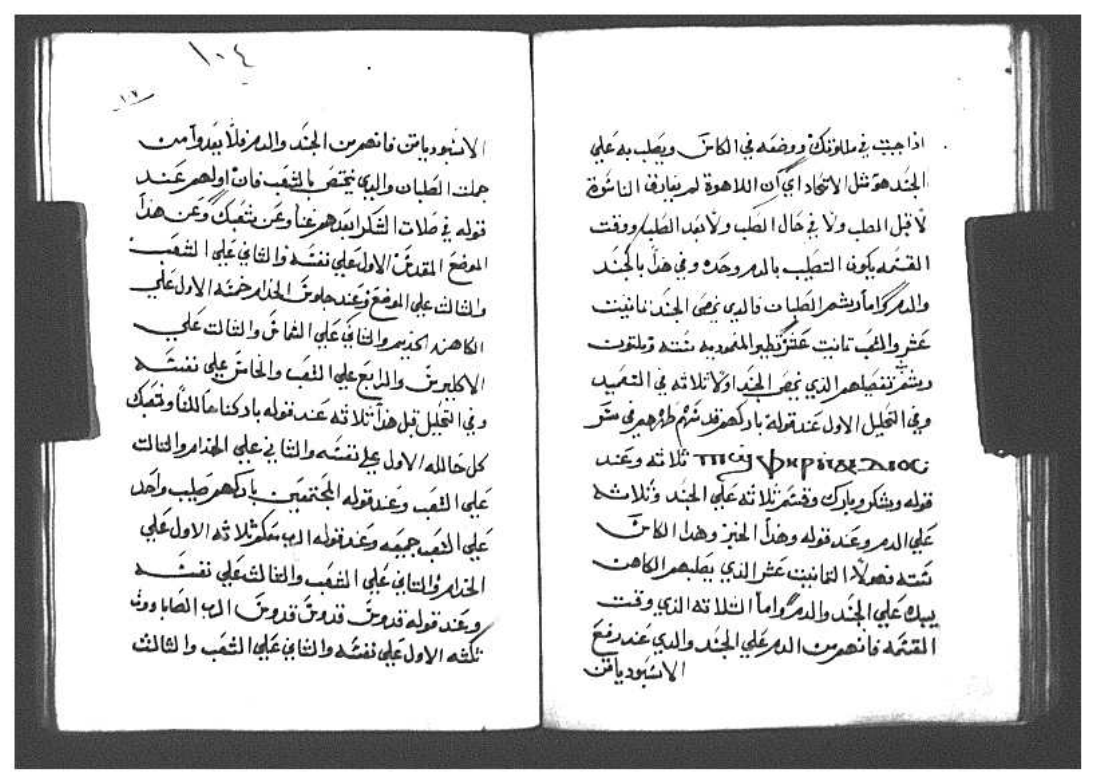 اذا جيت في ملكوتك ووضعه في الكاس ويصلب به علي
الجسد هو مثل الاتحاد اي ان اللاهوة لم يفارق الناسوة
لا قبل الصلب ولا في حال الصلب ولا بعد الصلب ووقت
القسمه يكون التصليب بالدم وحده وفي هذا بالجسد
والدم كواما رشم الصلبان فالدي يخص الجسد ثمانيت
عشر والشعب تمانيت عشر نظير المعموديه سته وتلتون
وفي التحليل الاول عند قوله باركهم قدسهم
ثلاثه وعند
قوله ويشكر وبارك وقسم ثلاثه علي الجسد وثلاثه
علي الدم وعند قوله وهدا الخبز وهدا الكاس
سته فهولا التمانيت عشر الذي يصلبهم الكاهن
بيده علي الجسد والدم واما التلاته الذي وقت
القسمه فانهم من الدم علي الجسد والدي عند رفع
الاسبودياقن
١٠٤
١٠٧
الاسبودياقن فانهم من الجسد والدم فلا يعدوا من
جملت الصلبان والدي يختص بالشعب فان اولهم عند
قوله في صلات الشكر ابعدهم عنا وعن شعبك وعن هدا
الموضع المقدس الاول علي نفسه والثاني علي الشعب
والثالث علي الموضع وعند جلوس الخدام خمسه الاول علي
الكاهن الخديم والثاني علي الشماس والثالت علي
الاكليرس والرابع علي الشعب والخامس علي نفسه
وفي التحليل قبل هدا ثلاثه عند قوله باركنا حاللنا وشعبك
كل حالله الاول علي نفسه والثاني علي الخدام والثالت
علي الشعب وعند قوله المجتمعين باركهم صليب واحد
علي الشعب جميعه وعند قوله الرب معكم ثلاثه الاول علي
الخدام والثاني علي الشعب والثالث علي نفسه
وعند قوله قدوس قدوس قدوس الرب الصاباووت
ثلثه الاول علي نفسه والثاني علي الشعب والثالث